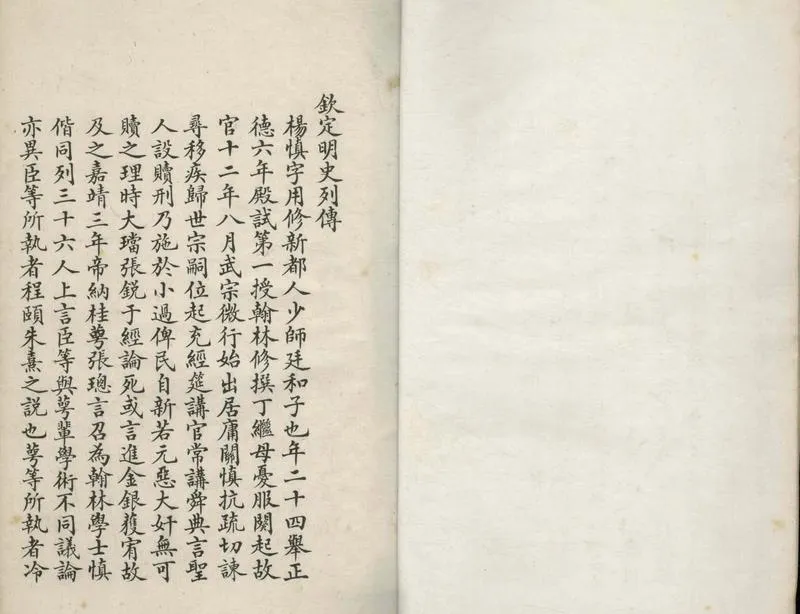 欽定明史列傳
楊慎字用修新都人少師廷和子也年二十四舉正
德六年殿試第一授翰林修撰丁繼母憂服闋起故
官十二年八月武宗微行始出居庸關慎抗疏切諫
尋移疾歸世宗嗣位起充經筵講官常講舜典言聖
人設贖刑乃施於小過俾民自新若元惡大奸無可
贖之理時大璫張銳于經論死或言進金銀獲宥故
及之嘉靖三年帝納桂萼張璁言召為翰林學士慎
偕同列三十六人上言臣等與萼輩學術不同議論
亦異臣等所執者程頤朱熹之説也萼等所執者冷